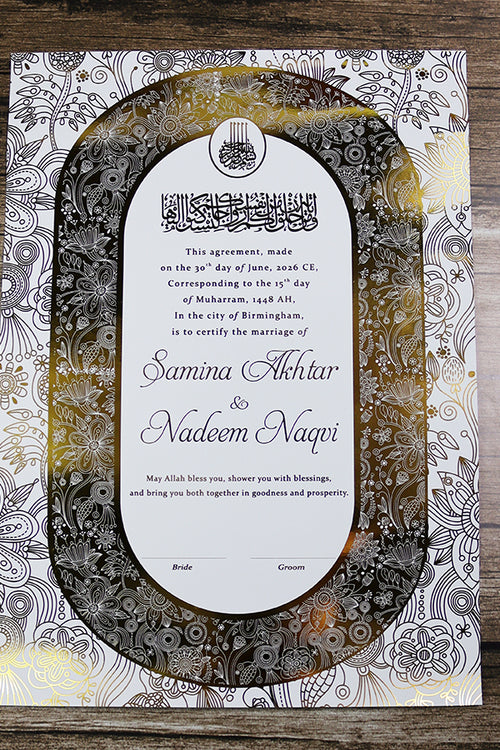 This agreement, made
on the 30th day of June, 2026 CE,
Corresponding to the 15th day
of Muharram, 1448 AH,
In the city of Birmingham,
is to certify the marriage of
Samina Akhtar
&
Nadeem Naqvi
May Allah bless you, shower you with blessings,
and bring you both together in goodness and prosperity.
Bride Groom